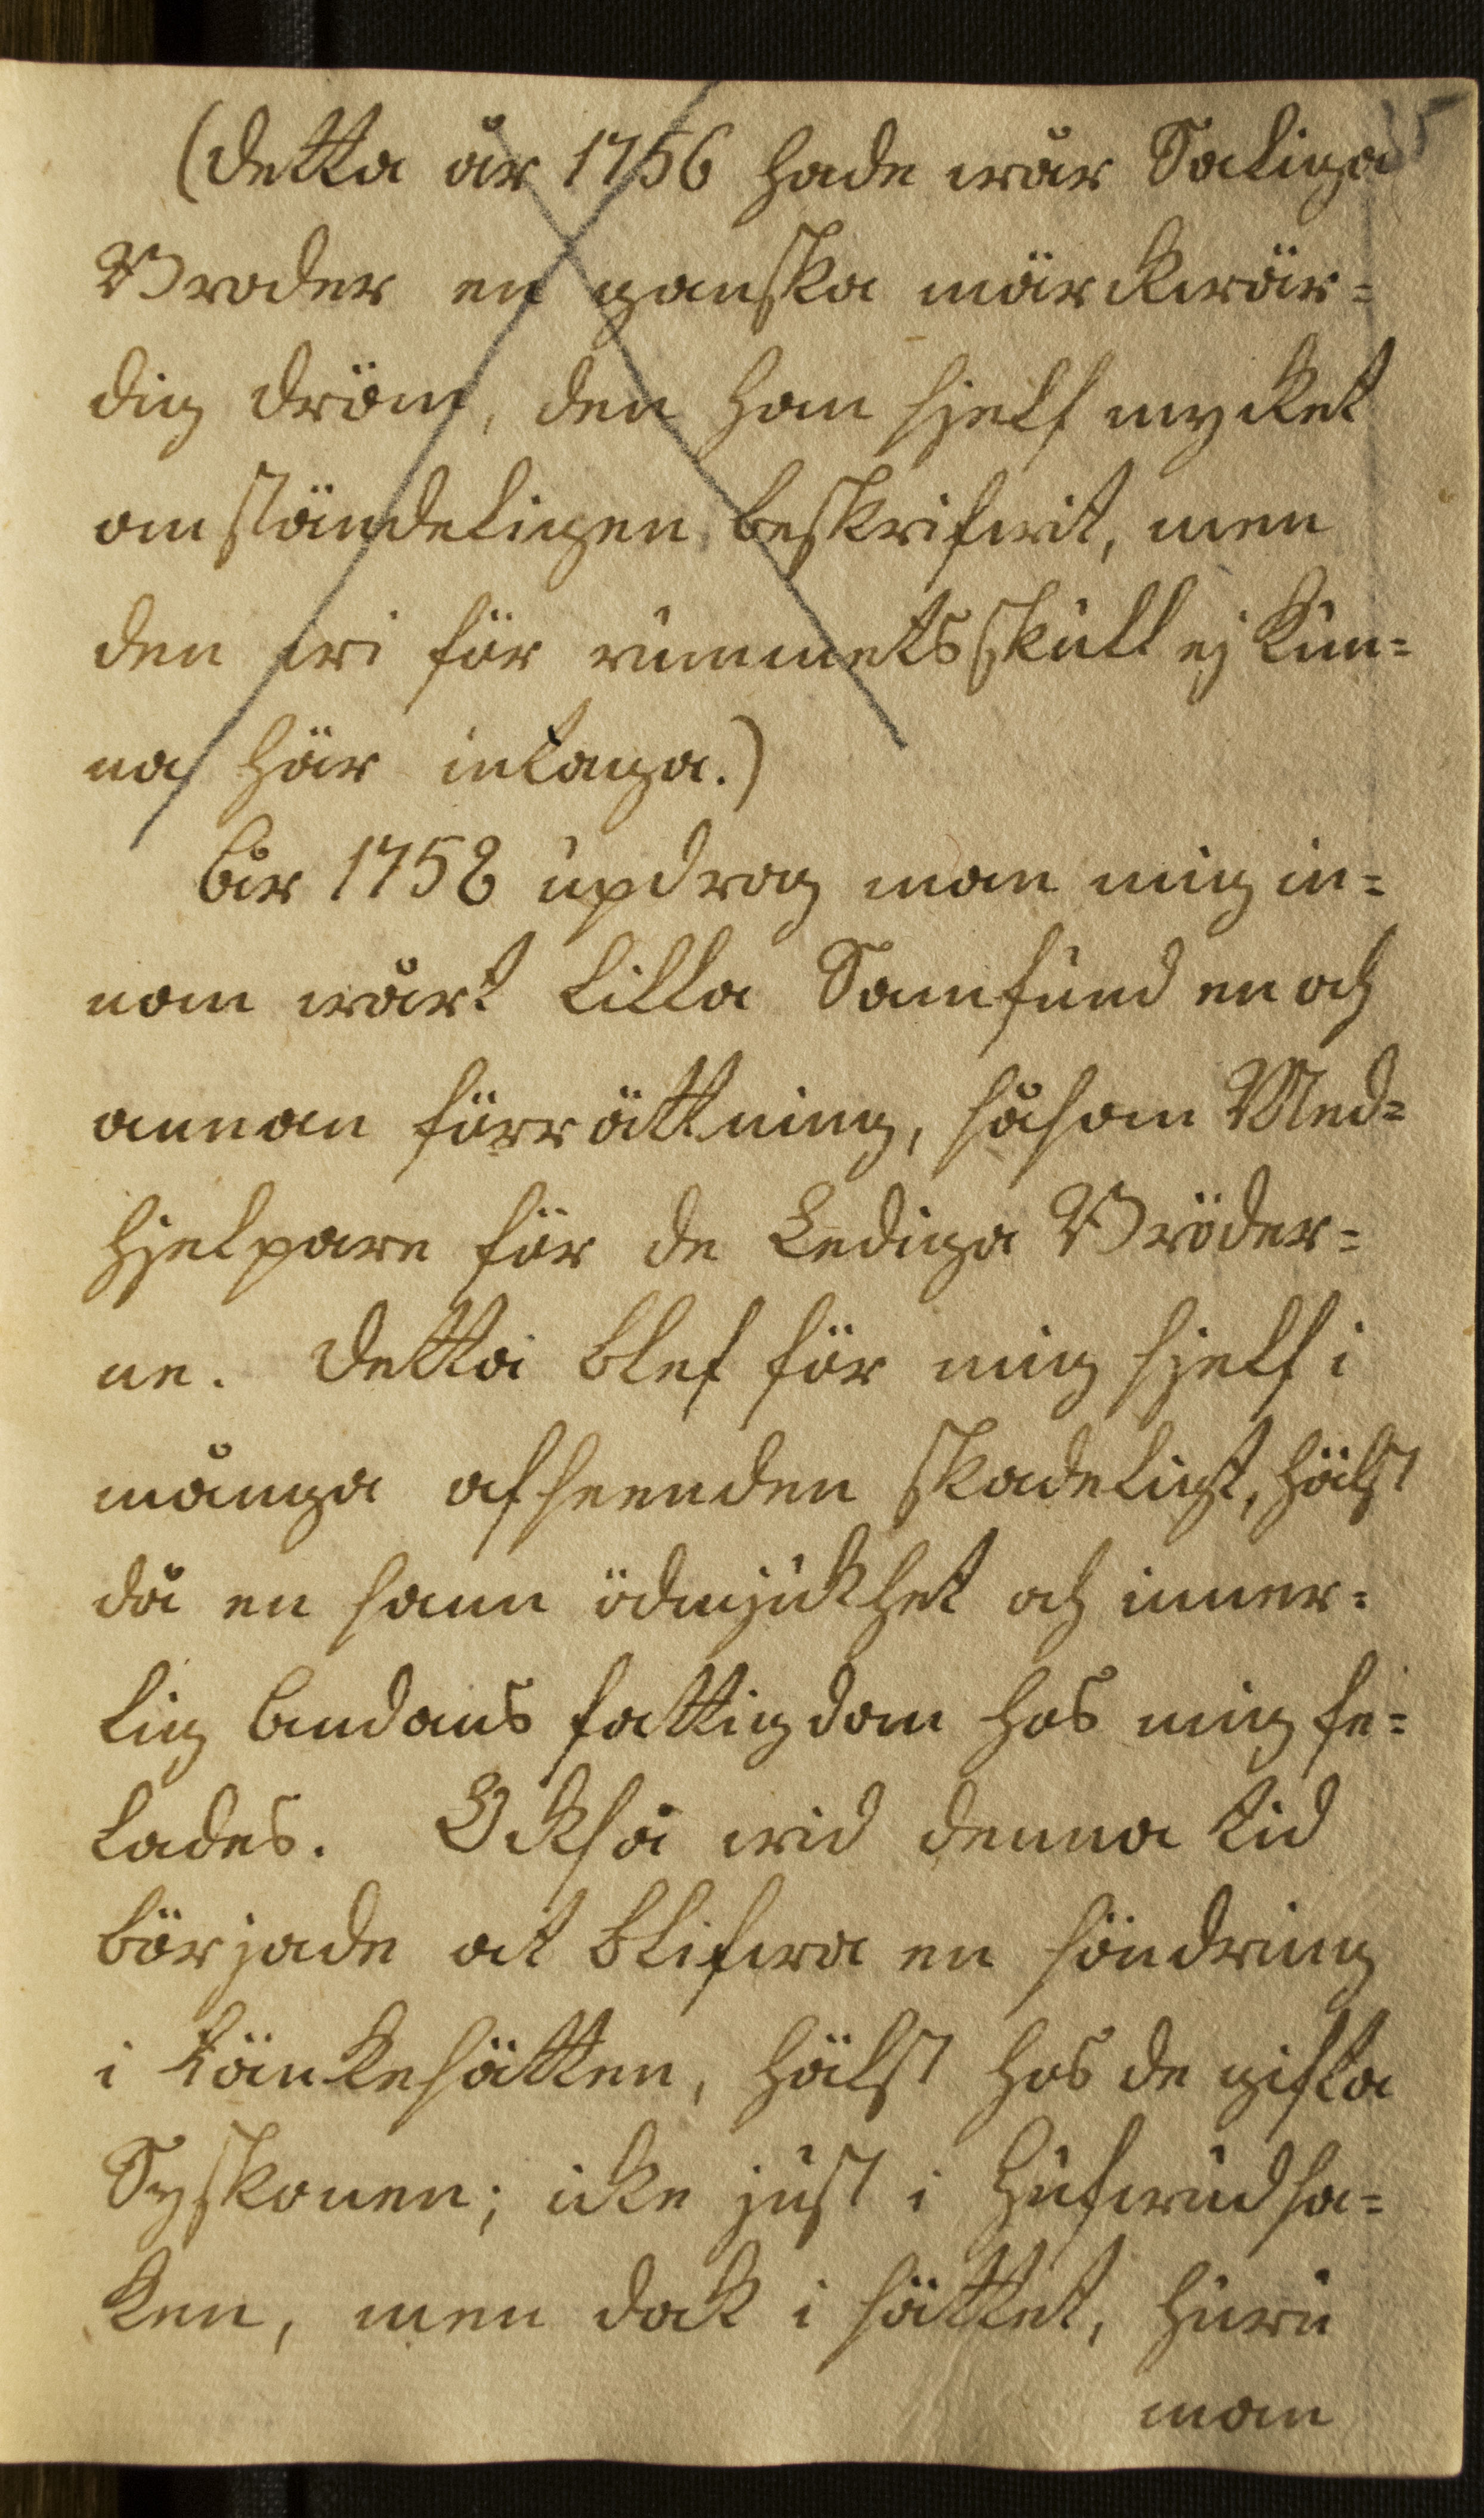 (Detta år 1756 hade wår Saliga
Broder en ganska märckwär=
dig dröm, den han sjelf mycket
omständeligen beskrifwit, men
den wi för rummets skull ej kun=
na här intaga.)
År 1758 updrog man mig in=
nom wårt lilla Samfund en och
annan förrättning, såsom Med=
hjelpare för de Lediga Bröder=
ne. Detta blef för mig sjelf i
många afseenden skadeligt, hälst
då en sann ödmjukhet och inner=
lig Andans fattigdom hos mig fe=
lades. Också wid denna tid
började at blifwa en söndring
i tänkesätten, hälst hos de gifta
Syskonen; icke just i hufwudsa=
ken, men dock i sättet, huru
man